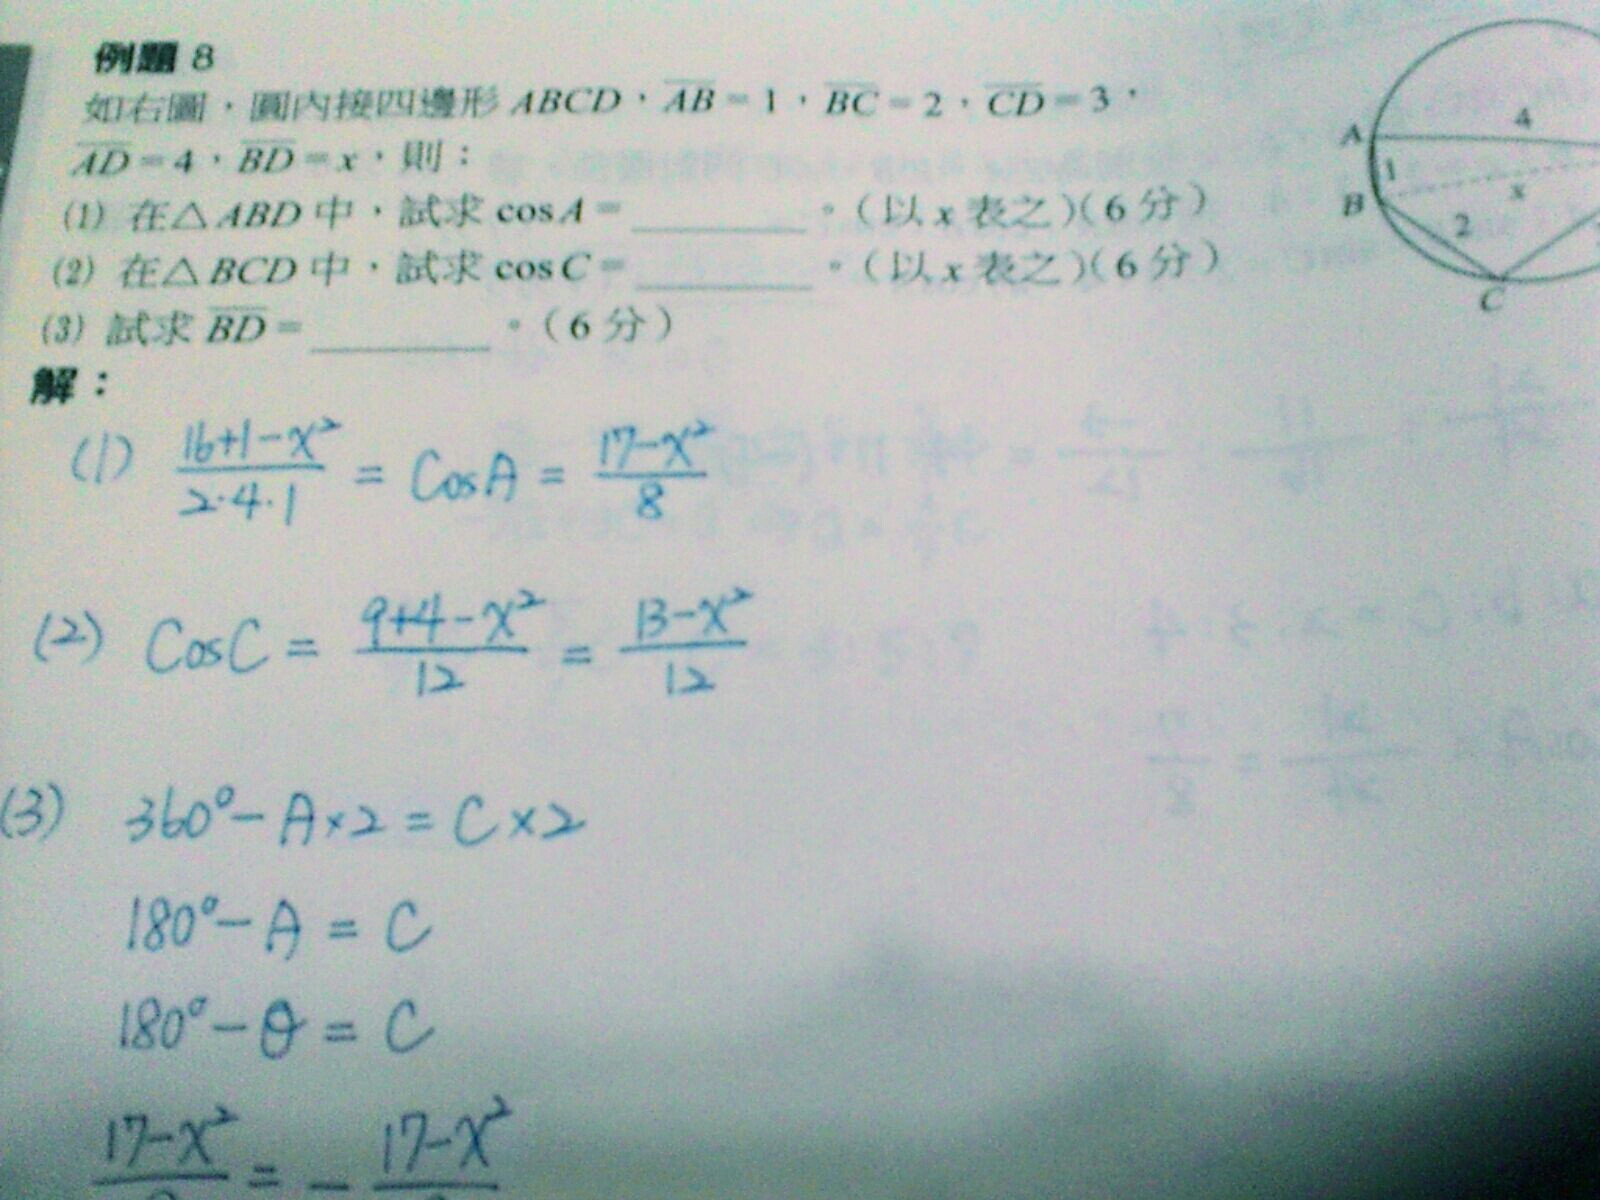 例題 8
如右圖，圓內接四邊形 ABCD，AB=1，BC=2，CD=3，
AD=4，BD=x，則：
(1) 在△ABD 中，試求 cosA=________。(以 x 表之)(6 分)
(2) 在△BCD 中，試求 cosC=________。(以 x 表之)(6 分)
(3) 試求 BD=________。(6 分)
A
4
1
x
B
2
C
解：
(1) (16+1-x²)/(2·4·1) = CosA = (17-x²)/8
(2) CosC = (9+4-x²)/12 = (13-x²)/12
(3) 360°-A×2 = C×2
180°-A = C
180°-θ = C
17-x² = - 17-x²